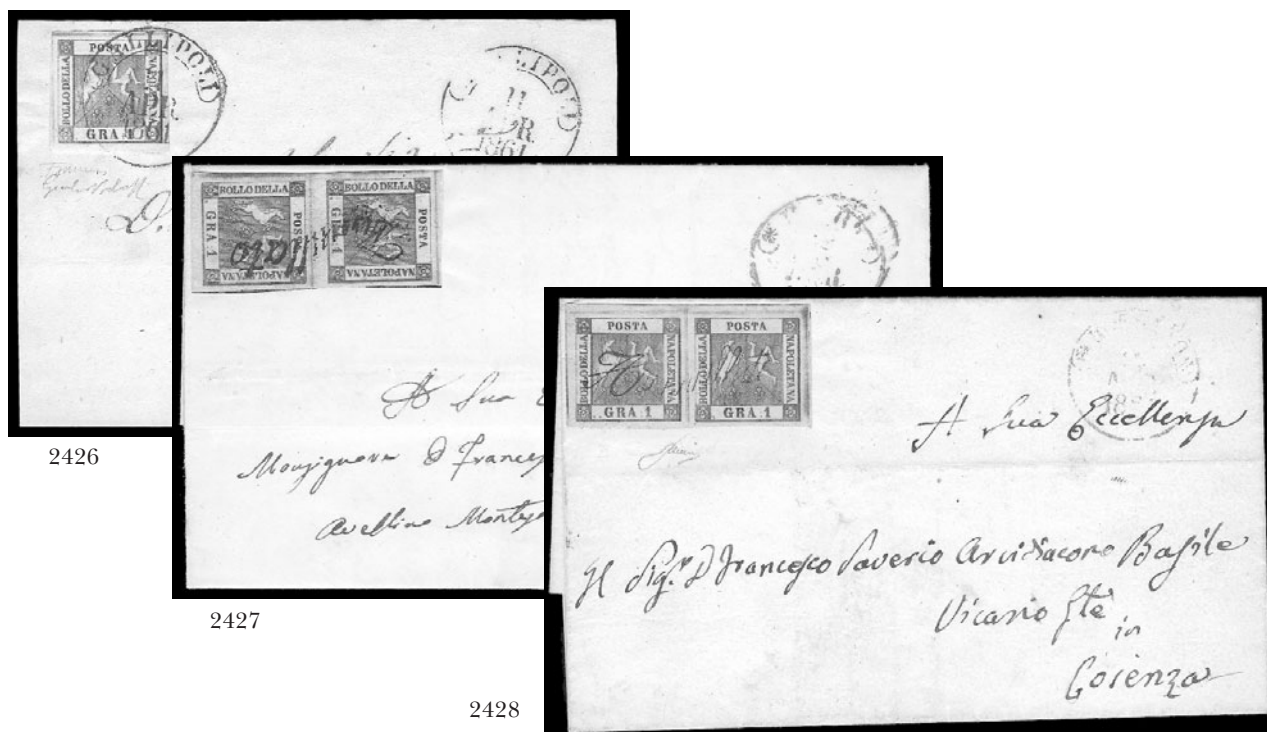 POSTA
BOLLO DELLA
NAPOLETANA
GRA 1
GALLIPOLI
APR
1861
LLIPOLI
11
APR
1861
D.
2426
BOLLO DELLA
GRA 1
POSTA
NAPOLETANA
BOLLO DELLA
GRA 1
POSTA
NAPOLETANA
Annullato
A Sua
Monsignore D Frances
Avellino
2427
POSTA
BOLLO DELLA
NAPOLETANA
GRA 1
POSTA
BOLLO DELLA
NAPOLETANA
GRA 1
A Sua Eccellenza
Il Sigr. D Francesco Saverio Arcidiacono Basile
Vicario Gle
in
Cosenza
2428